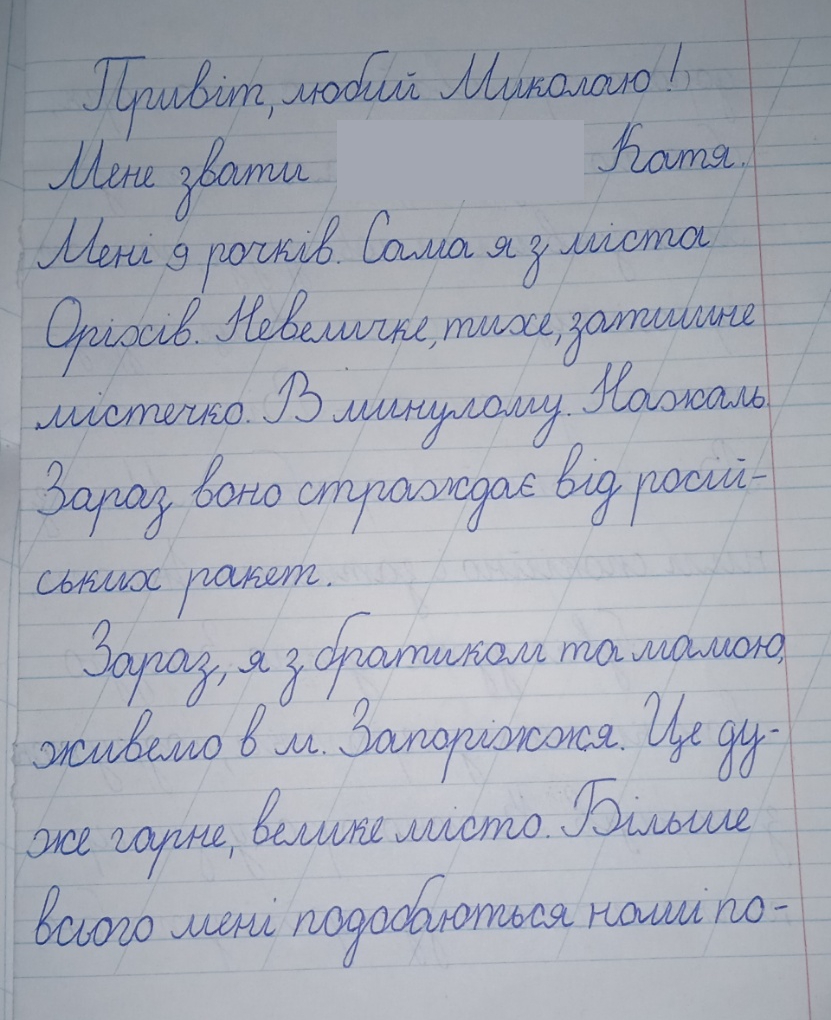 Привіт, любий Миколаю!
Мене звати Катя.
Мені 9 рочків. Сама я з міста
Оріхів. Невеличке, тихе, затишне
містечко. В минулому. Нажаль
Зараз воно страждає від росій-
ських ракет.
Зараз, я з братиком та мамою,
живемо в м. Запоріжжя. Це ду-
же гарне, велике місто. Більше
всього мені подобаються наші по-